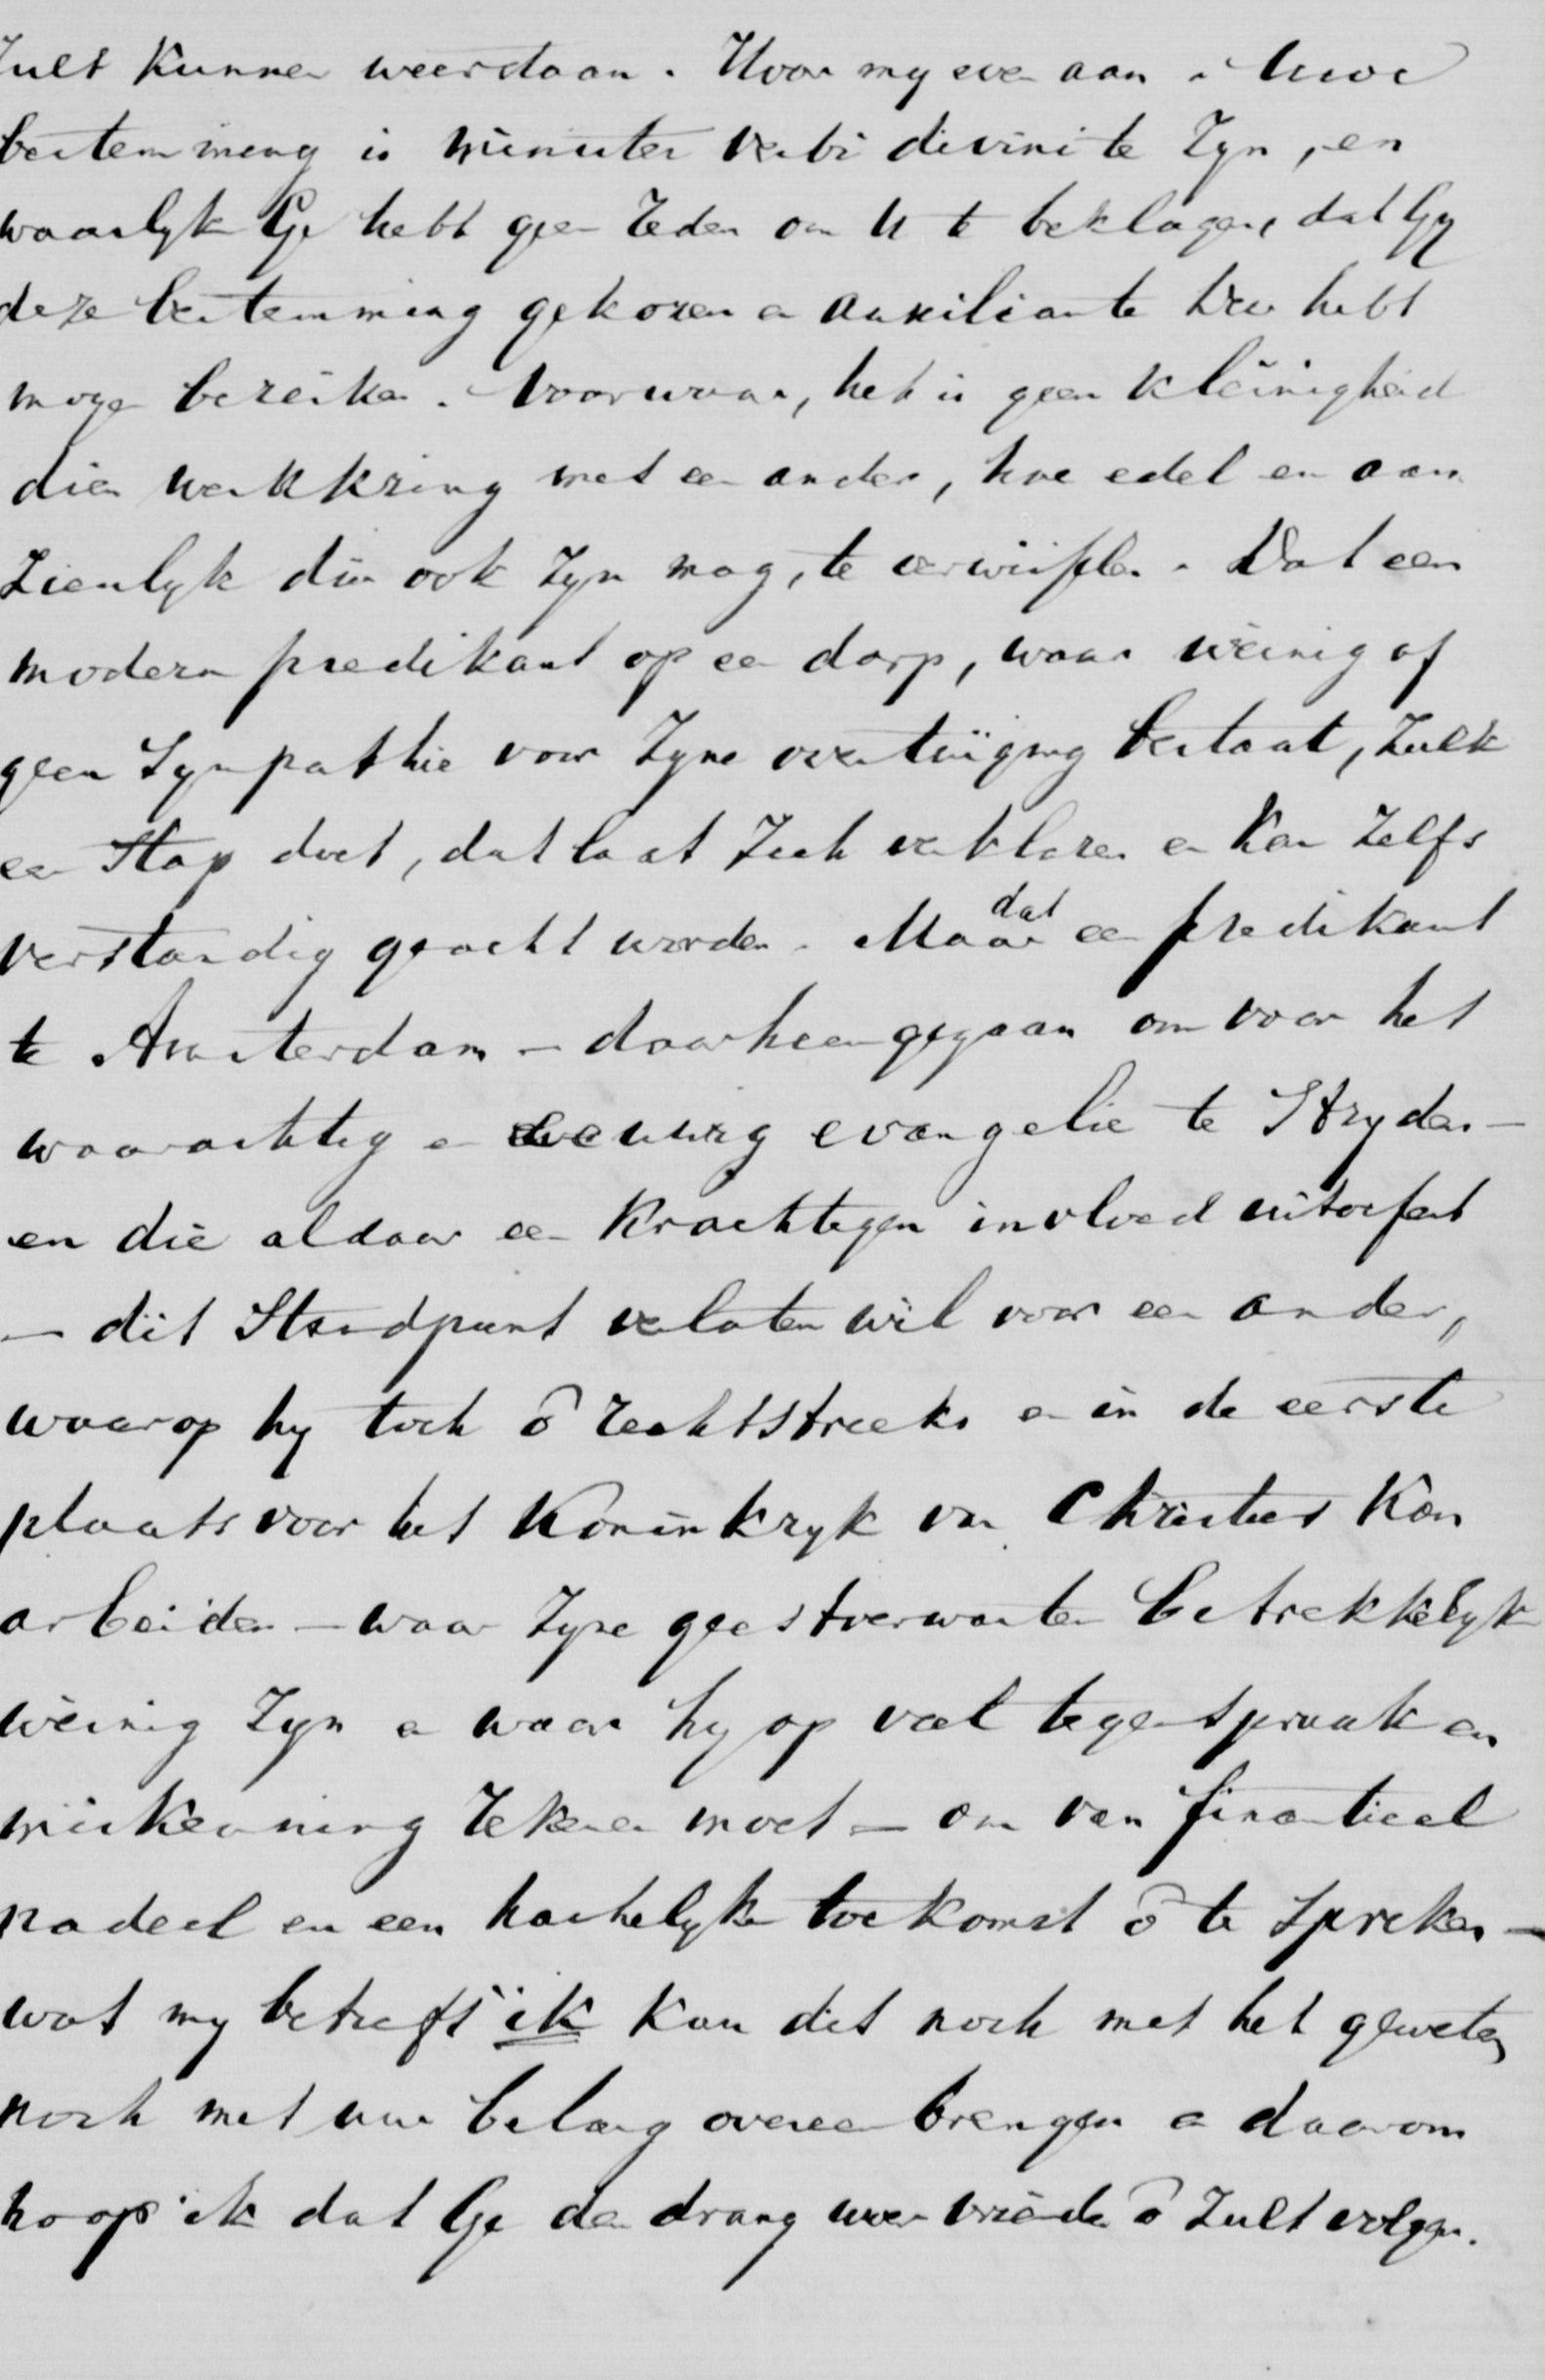 Zult kunnen weerstaan. Hoor my even aan. Uwe
bestemming is minister verbi divini te Zyn, en
waarlyk Ge hebt geen reden om U te beklagen, dat Gy
deze bestemming gekozen en auxiliante Deo hebt
mogen bereiken. Voorwaar, het is geen kleinigheid
dien werkkring met een ander, hoe edel en aan
Zienlyk die ook Zyn mag, te verwisselen. Dat een
modern predikant op een dorp, waar weinig of
geen Sympathie voor Zyne overtuiging bestaat, Zulk
een Stap doet, dat laat Zich verklaren en kan Zelfs
verstandig geacht worden. Maar dat een predikant
te Amsterdam – daarheen gegaan om voor het
waarachtig en eeuwig evangelie te Stryden –
en die aldaar een krachtigen invloed uitoefent
– dit Standpunt verlaten wil voor een ander,
waarop hy toch ō rechtstreeks en in de eerste
plaats voor het Koninkryk van Christus kan
arbeiden – waar Zyne geestverwanten betrekkelyk
weinig Zyn en waar hy op veel tegenspraak en
miskenning rekenen moet – om van finantieel
nadeel en een hachelyke toekomst ō te Spreken –
wat my betreft ik kan dit noch met het geweten
noch met uw belang overeenbrengen en daarom
hoop ik dat Ge den drang uwer vrienden ō Zult volgen.